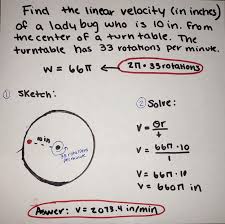 Find the linear velocity (in inches)
of a lady bug who is 10 in. from
the center of a turn table. The
turntable has 33 rotations per minute.
W = 66π ← 2π • 33 rotations
① Sketch:
10 in
33 rotations
per minute
② Solve:
V = θr
t
V = 66π • 10
1
V = 66π • 10
V = 660π in
Answer: V = 2073.4 in/min